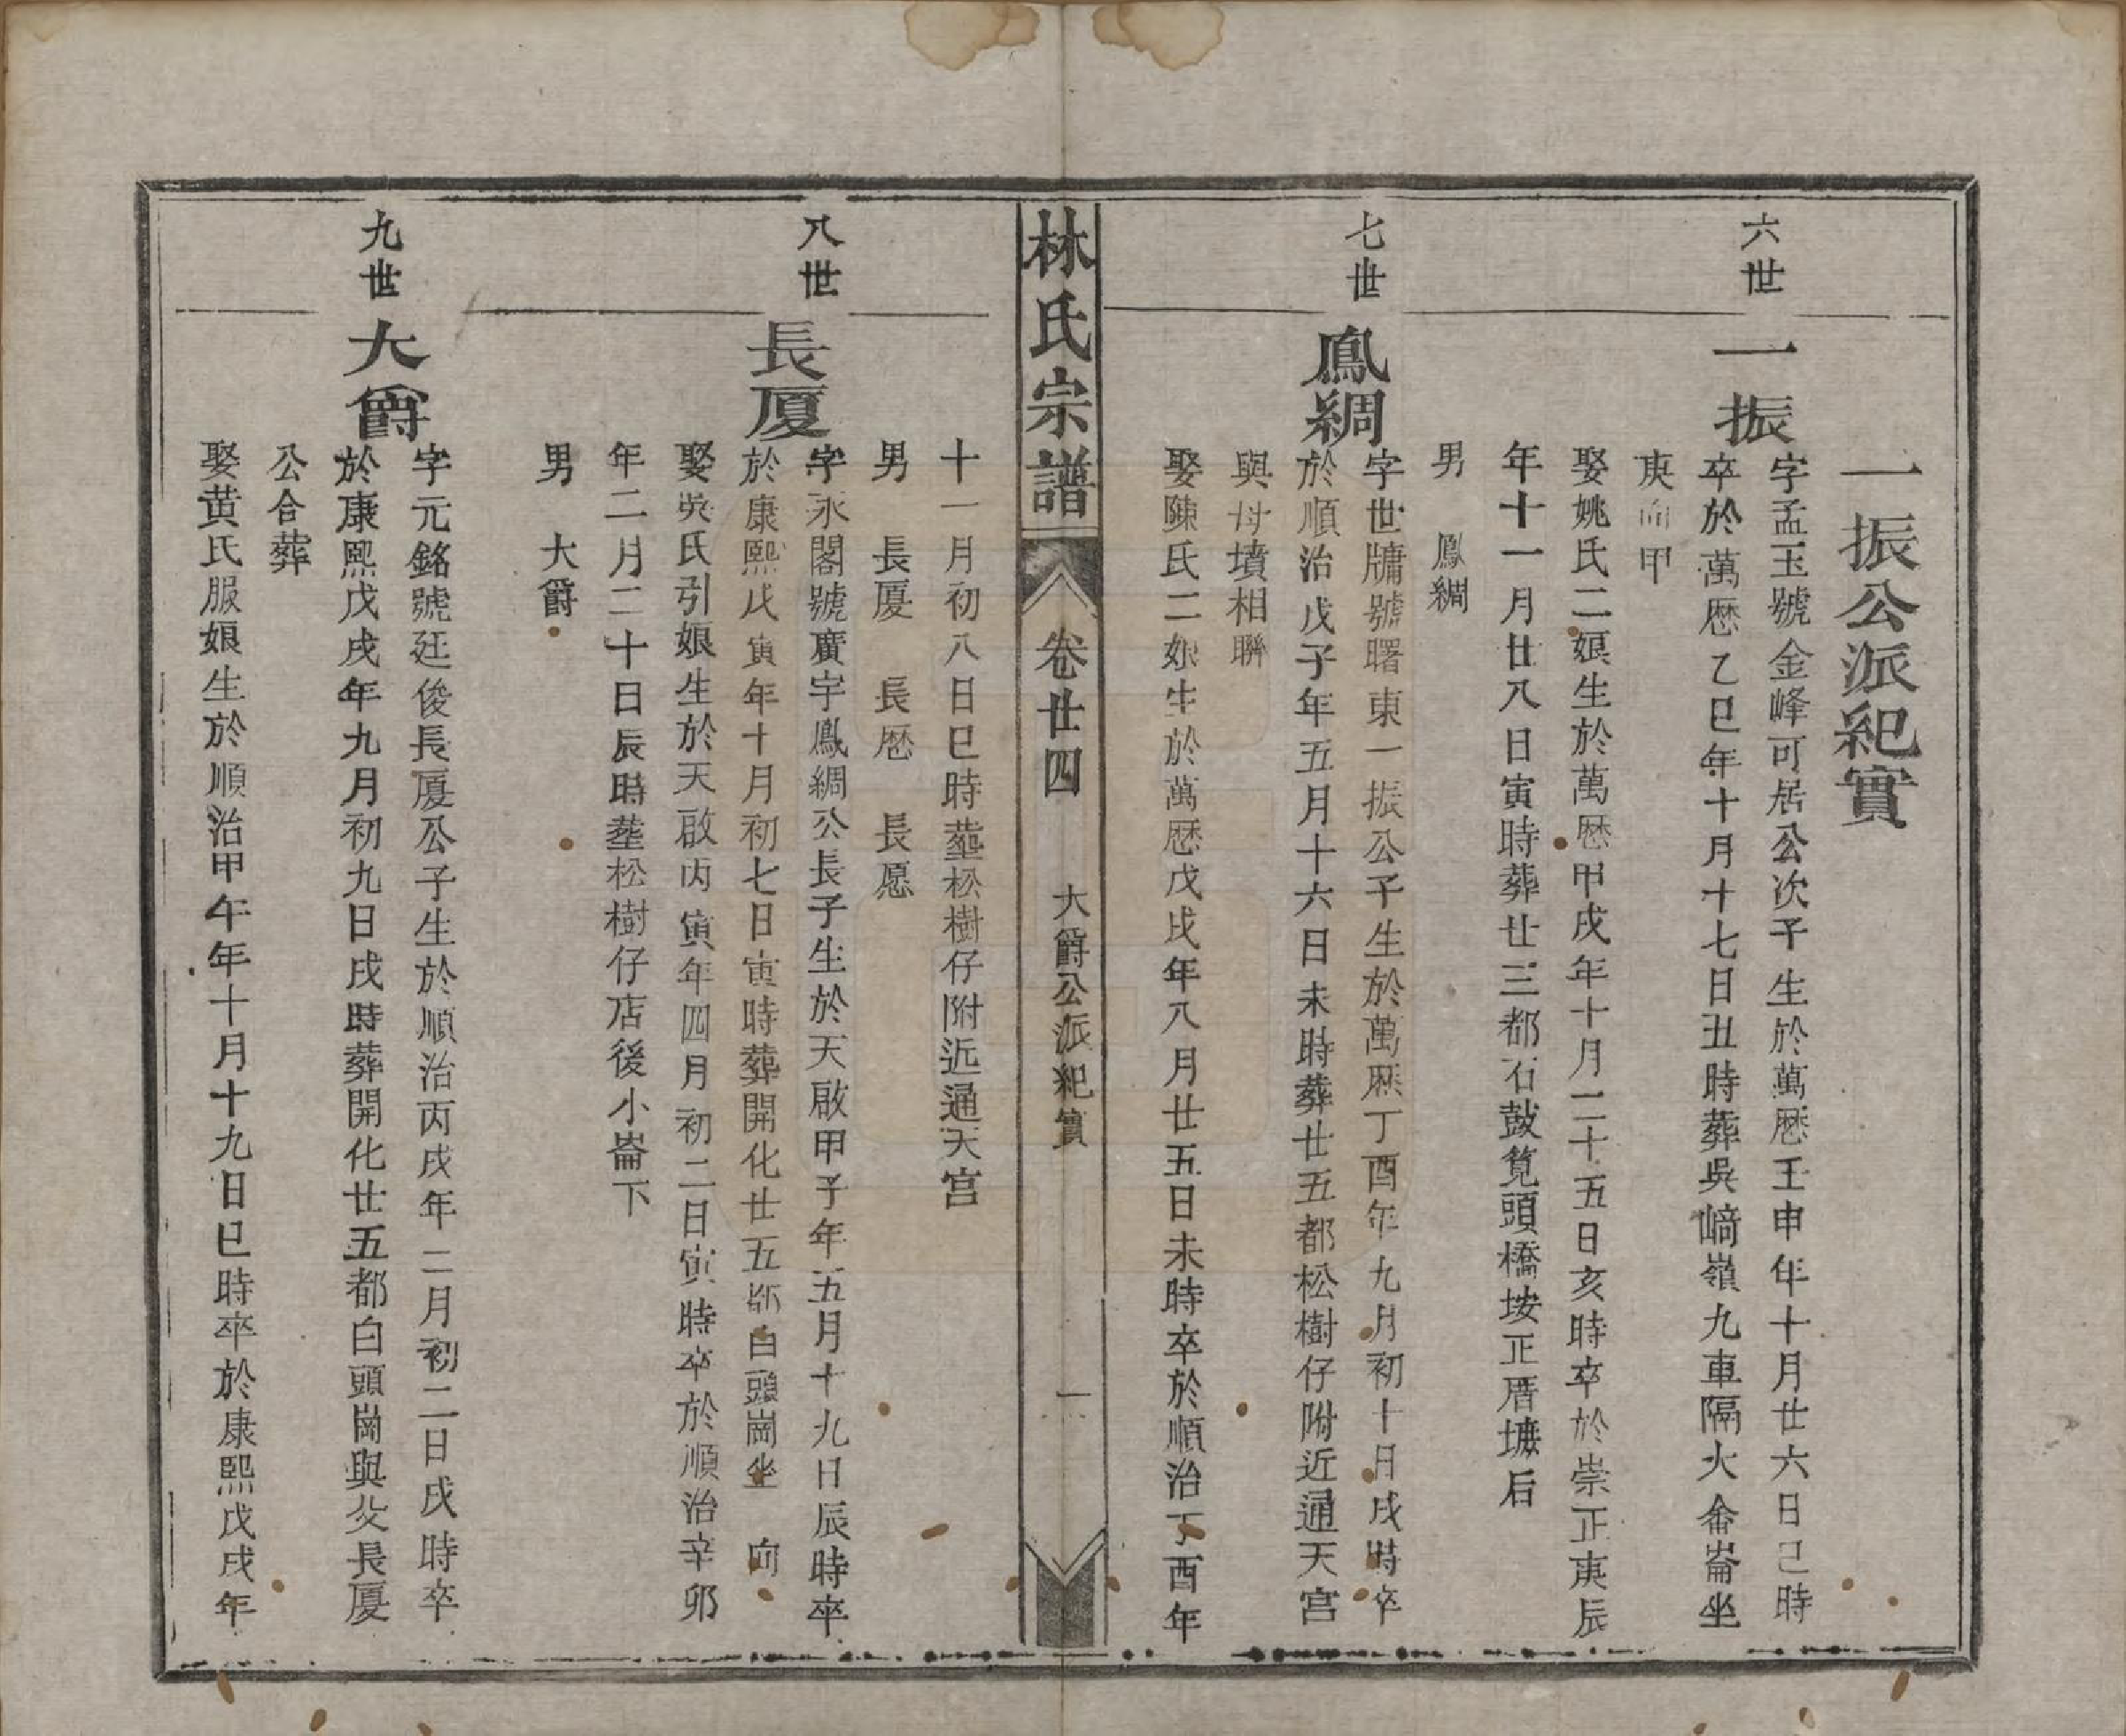 一振公派紀實
六世
一振
字孟玉號金峰可居公次子生於萬厯壬申年十月廿六日巳時
卒於萬厯乙巳年十月十七日丑時葬吳﨑嶺九車隔大侖崙坐
庚向甲
娶姚氏二娘生於萬厯甲戌年十月二十五日亥時卒於崇正庚辰
年十一月廿八日寅時葬廿三都石鼓筧頭橋垵正厝墘后
男 鳳綢
七世
鳳綢
字世牗號曙東一振公子生於萬厯丁酉年九月初十日戌時卒
於順治戊子年五月十六日未時葬廿五都松樹仔附近通天宮
與母墳相聯
娶陳氏二娘生於萬厯戊戌年八月廿五日未時卒於順治丁酉年
林氏宗譜
卷廿四
大爵公派紀實
一
十一月初八日巳時塟松樹仔附近通天宮
男 長厦 長厯 長愿
八世
長厦
字永閣號廣宇鳳綢公長子生於天啟甲子年五月十九日辰時卒
於康熙戊寅年十月初七日寅時葬開化廿五都白頭崗坐 向
娶吳氏引娘生於天啟丙寅年四月初二日寅時卒於順治辛卯
年二月二十日辰時塟松樹仔店後小崙下
男 大爵
九世
大爵
字元銘號廷俊長厦公子生於順治丙戌年二月初二日戌時卒
於康熙戊戌年九月初九日戌時葬開化廿五都白頭崗與父長厦
公合葬
娶黃氏服娘生於順治甲午年十月十九日巳時卒於康熙戊戌年